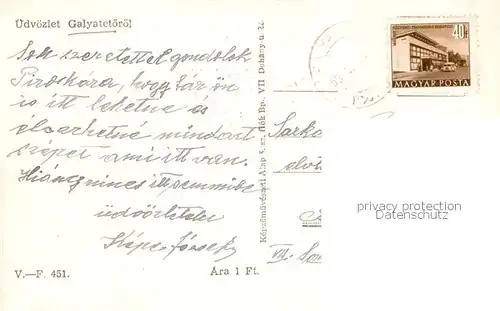 Üdvözlet Galyatetőről
Sok szeretettel gondolok
Piroskára, hogy bár ön
is itt lehetne és
élvezhetné mindazt
szépet ami itt van.
Hiány nincs itt semmibe
üdvözlettel
József
V.—F. 451.
Ára 1 Ft.
Képzőművészeti Alap k. sz. fiók Bp. VII Dohány u.
40
MAGYAR POSTA
Sarka
VII. Som
privacy protection
Datenschutz